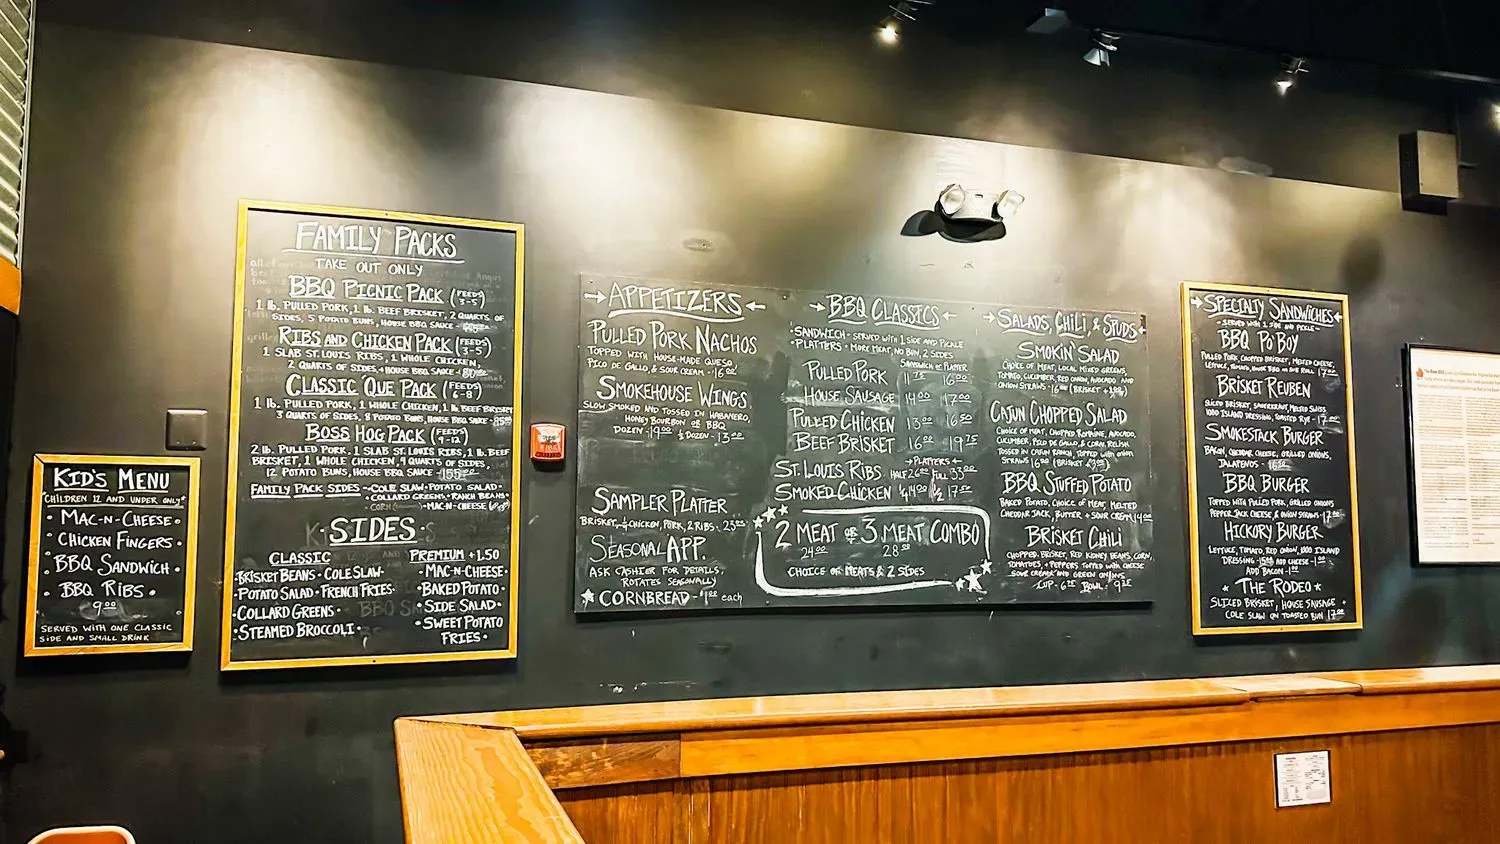 KID'S MENU
CHILDREN 12 AND UNDER ONLY*
• MAC-N-CHEESE •
• CHICKEN FINGERS •
• BBQ SANDWICH •
• BBQ RIBS •
9.00
SERVED WITH ONE CLASSIC
SIDE AND SMALL DRINK
FAMILY PACKS
TAKE OUT ONLY
BBQ PICNIC PACK (FEEDS 3-5)
1 lb. PULLED PORK, 1 lb. BEEF BRISKET, 2 QUARTS OF
SIDES, 5 POTATO BUNS, HOUSE BBQ SAUCE -
RIBS AND CHICKEN PACK (FEEDS 3-5)
1 SLAB ST. LOUIS RIBS, 1 WHOLE CHICKEN,
2 QUARTS OF SIDES, + HOUSE BBQ SAUCE - 80.00
CLASSIC 'QUE PACK (FEEDS 6-8)
1 lb. PULLED PORK, 1 WHOLE CHICKEN, 1 lb BEEF BRISKET
3 QUARTS OF SIDES, 8 POTATO BUNS, HOUSE BBQ SAUCE -
BOSS HOG PACK (FEEDS 9-12)
2 lb. PULLED PORK, 1 SLAB ST. LOUIS RIBS, 1 lb. BEEF
BRISKET, 1 WHOLE CHICKEN, 4 QUARTS OF SIDES,
12 POTATO BUNS, HOUSE BBQ SAUCE - 155.00
FAMILY PACK SIDES - • COLE SLAW • POTATO SALAD •
• COLLARD GREENS • RANCH BEANS •
• CORN • MAC-N-CHEESE
SIDES
CLASSIC
• BRISKET BEANS • COLE SLAW •
• POTATO SALAD • FRENCH FRIES •
• COLLARD GREENS •
• STEAMED BROCCOLI •
PREMIUM +1.50
• MAC-N-CHEESE •
• BAKED POTATO •
• SIDE SALAD •
• SWEET POTATO
FRIES •
→ APPETIZERS ←
PULLED PORK NACHOS
TOPPED WITH HOUSE-MADE QUESO
PICO DE GALLO, & SOUR CREAM - 16.00
SMOKEHOUSE WINGS
SLOW SMOKED AND TOSSED IN HABANERO,
HONEY BOURBON OR BBQ
DOZEN - 19.00 ½ DOZEN - 13.00
SAMPLER PLATTER
BRISKET, ¼ CHICKEN, PORK, 2 RIBS - 23.95
SEASONAL APP.
ASK CASHIER FOR DETAILS,
ROTATES SEASONALLY)
★ CORNBREAD - $1.00 each
→ BBQ CLASSICS ←
*SANDWICH - SERVED WITH 1 SIDE AND PICKLE
*PLATTERS - MORE MEAT, NO BUN, 2 SIDES
SANDWICH OR PLATTER
PULLED PORK 11.75 16.00
HOUSE SAUSAGE 14.00 17.00
PULLED CHICKEN 13.00 16.50
BEEF BRISKET 16.00 19.75
→ PLATTERS ←
ST. LOUIS RIBS HALF 26.00 FULL 33.00
SMOKED CHICKEN ¼ 14.00 ½ 17.50
2 MEAT OR 3 MEAT COMBO
24.00 28.00
CHOICE OF MEATS & 2 SIDES
→ SALADS, CHILI, & SPUDS ←
SMOKIN' SALAD
CHOICE OF MEAT, LOCAL MIXED GREENS,
TOMATO, CUCUMBER, RED ONION, AVOCADO AND
ONION STRAWS - 16.00 (BRISKET
CAJUN CHOPPED SALAD
CHOICE OF MEAT, CHOPPED ROMAINE, AVOCADO,
CUCUMBER, PICO DE GALLO & CORN RELISH
TOSSED IN CAJUN RANCH, TOPPED WITH ONION
STRAWS 16.00 (BRISKET
BBQ STUFFED POTATO
BAKED POTATO, CHOICE OF MEAT, MELTED
CHEDDAR JACK, BUTTER + SOUR CREAM 14.00
BRISKET CHILI
CHOPPED BRISKET, RED KIDNEY BEANS, CORN,
TOMATOES, + PEPPERS TOPPED WITH CHEESE
SOUR CREAM AND GREEN ONIONS
CUP - 6.75 BOWL - 9.75
→ SPECIALTY SANDWICHES ←
- SERVED WITH 1 SIDE AND PICKLE -
BBQ PO'BOY
PULLED PORK, CHOPPED BRISKET, MELTED CHEESE,
LETTUCE, TOMATO, HOUSE BBQ ON SUB ROLL 17.00
BRISKET REUBEN
SLICED BRISKET, SAUERKRAUT, MELTED SWISS
1000 ISLAND DRESSING, TOASTED RYE - 17.00
SMOKESTACK BURGER
BACON, CHEDDAR CHEESE, GRILLED ONIONS,
JALAPEÑOS - 16.50
BBQ BURGER
TOPPED WITH PULLED PORK, GRILLED ONIONS
PEPPER JACK CHEESE, & ONION STRAWS 17.00
HICKORY BURGER
LETTUCE, TOMATO, RED ONION, 1000 ISLAND
DRESSING - ADD CHEESE - 1.00
ADD BACON - 1.00
★ THE RODEO ★
SLICED BRISKET, HOUSE SAUSAGE +
COLE SLAW ON TOASTED BUN 17.00